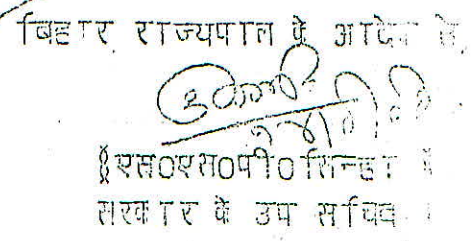 बिहार राज्यपाल के आदेश से,
(एस०एस०पी० सिन्हा)
सरकार के उप सचिव ।